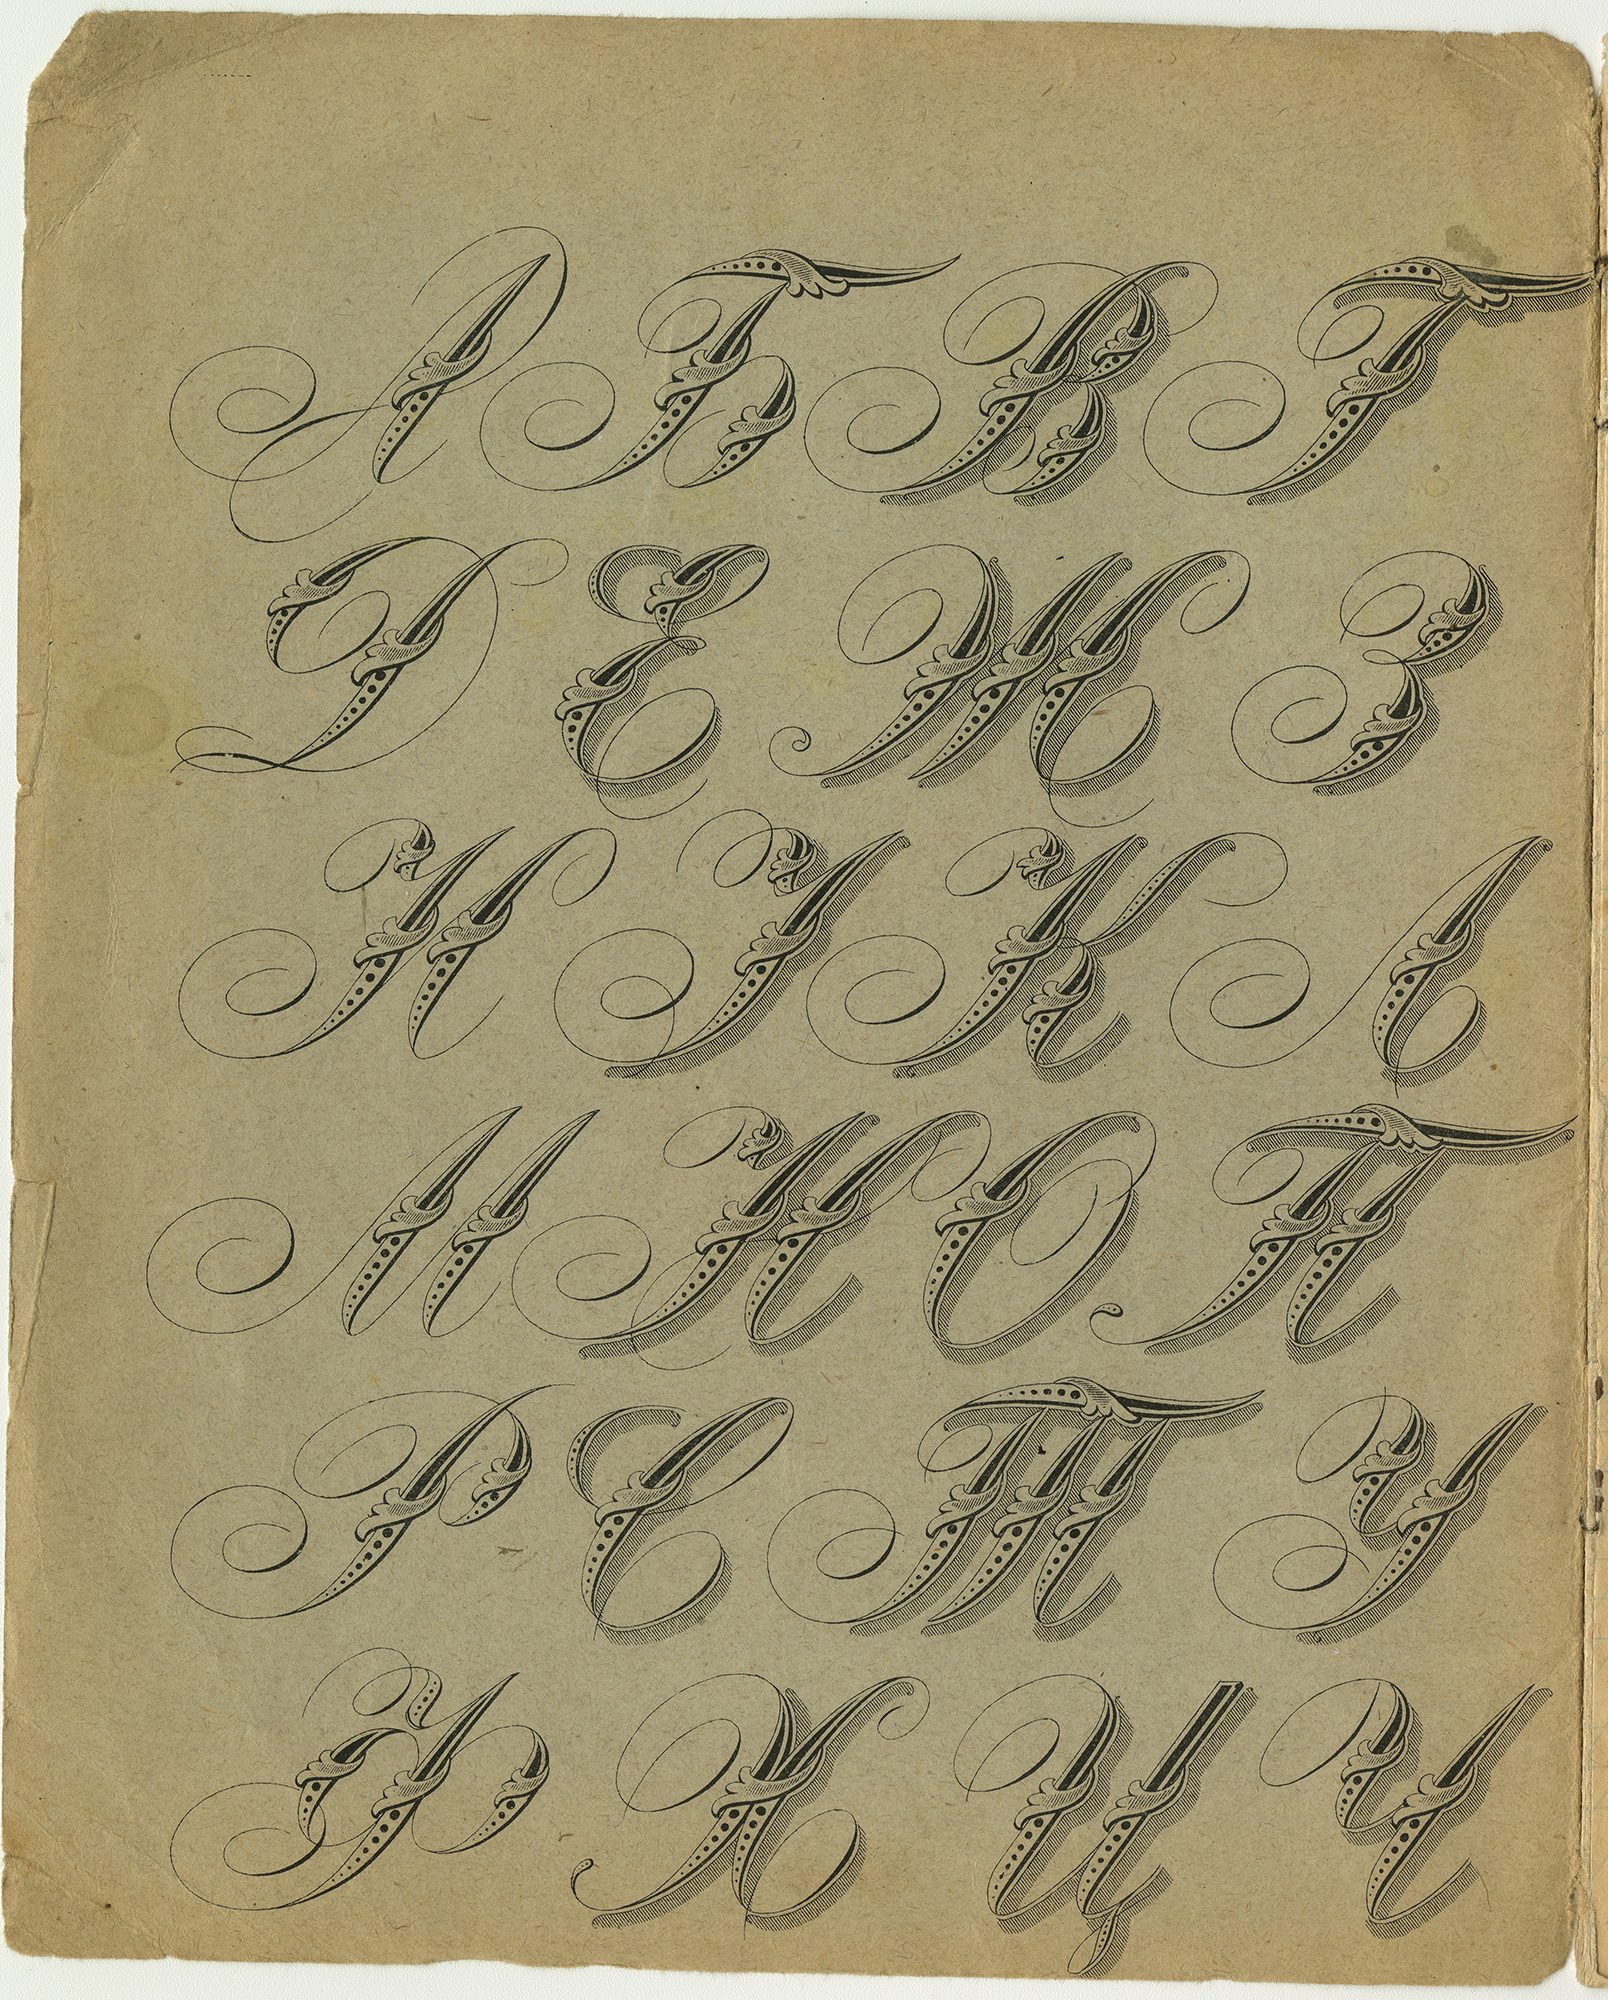 А Б В Г
Д Е Ж З
И І К Л
М Н О П
Р С Т У
Ф Х Ц Ч